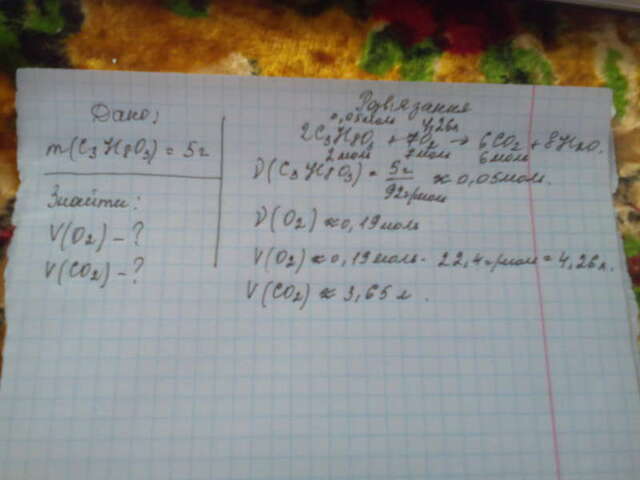 Дано:
m(C₃H8O₃) = 5г
Знайти:
V(O₂) – ?
V(CO₂) – ?
Розв'язання
0,05моль 4,26л
2C₃H8O₃ + 7O₂ → 6CO₂ + 8H₂O.
2моль 7моль 6моль
ν(C₃H8O₃) = 5г / 92г/моль ≈ 0,05моль.
ν(O₂) ≈ 0,19моль
V(O₂) ≈ 0,19моль · 22,4г/моль = 4,26л.
V(CO₂) ≈ 3,65л.